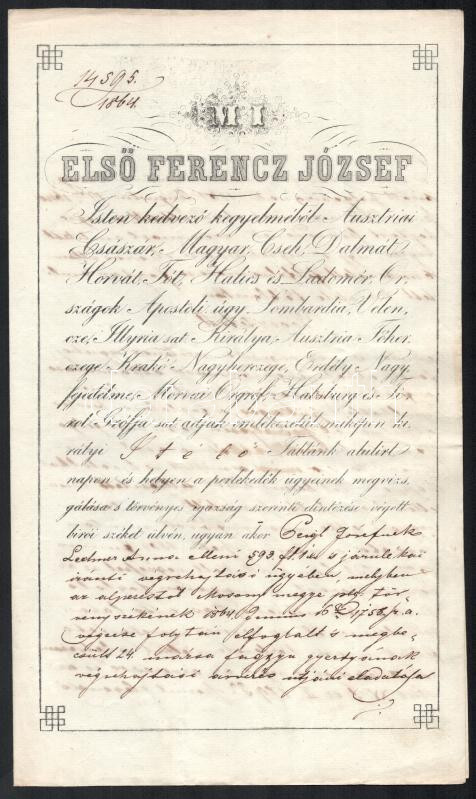 14595.
1864.
MI
ELSŐ FERENCZ JÓZSEF
Isten kedvező kegyelméből Ausztriai
Császár, Magyar, Cseh, Dalmát,
Horvát, Tót, Halics és Ladomér, Or
szágok Apostoli úgy Lombardia, Velen,
cze, Illyria sat. Királya, Ausztria Főher
czege Krakó Nagyherczege, Erdély Nagy
fejdelme, Morvai Őrgróf, Habzburg és Ty
rol Grófja sat adjuk emlékezetül miképen ki
rályi Itélő Táblánk alulirt
napon és helyen a perlekedők ügyeinek megvizs,
gálása s törvényes igazság szerinti elintézése végett
birói széket ülvén, ugyan akor Josefnek
Anna elleni 593 ft 1 s járulékai
iránti végrehajtási ügyében, melyben
az alperestől Mosom megye tör,
vényszékének 1864 Junius 1758 p. a.
végzése folytán elfoglalt s megbe,
csült 24 mázsa faggyu gyertyának
végrehajtási árverés utjáni eladatása